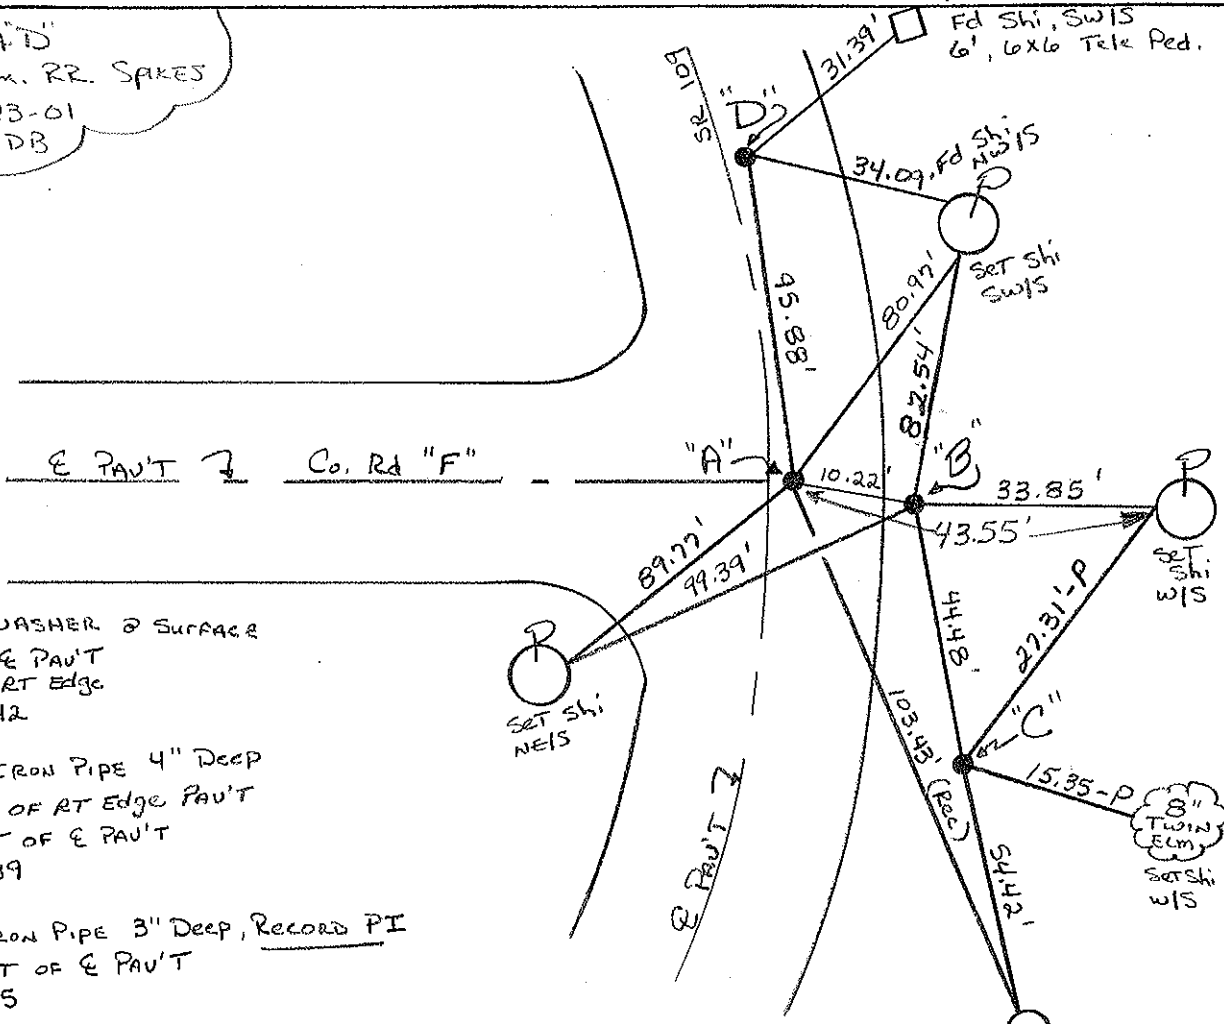 "D"
RR. SPIKES
3-01
DB
SR 109
"D"
31.39'
Fd Shi, SW/S
6', 6x6 Tele Ped.
34.09, Fd Shi
NW/S
P
SeT Shi
SW/S
95.88'
80.97'
82.54'
℄ PAV'T
Co. Rd "F"
"A"
10.22'
"B"
33.85'
43.55'
P
SeT
Shi
W/S
89.77'
99.39'
P
SeT Shi
NE/S
44.48'
27.31'-P
"C"
103.43' (Rec)
15.35-P
8"
TWIN
ELM
SeT Shi
W/S
54.42'
℄ PAV'T
WASHER @ SURFACE
℄ PAV'T
RT Edge
12
IRON PIPE 4" Deep
OF RT Edge PAV'T
OF ℄ PAV'T
39
PIPE 3" Deep, RECORD PI
OF ℄ PAV'T
5